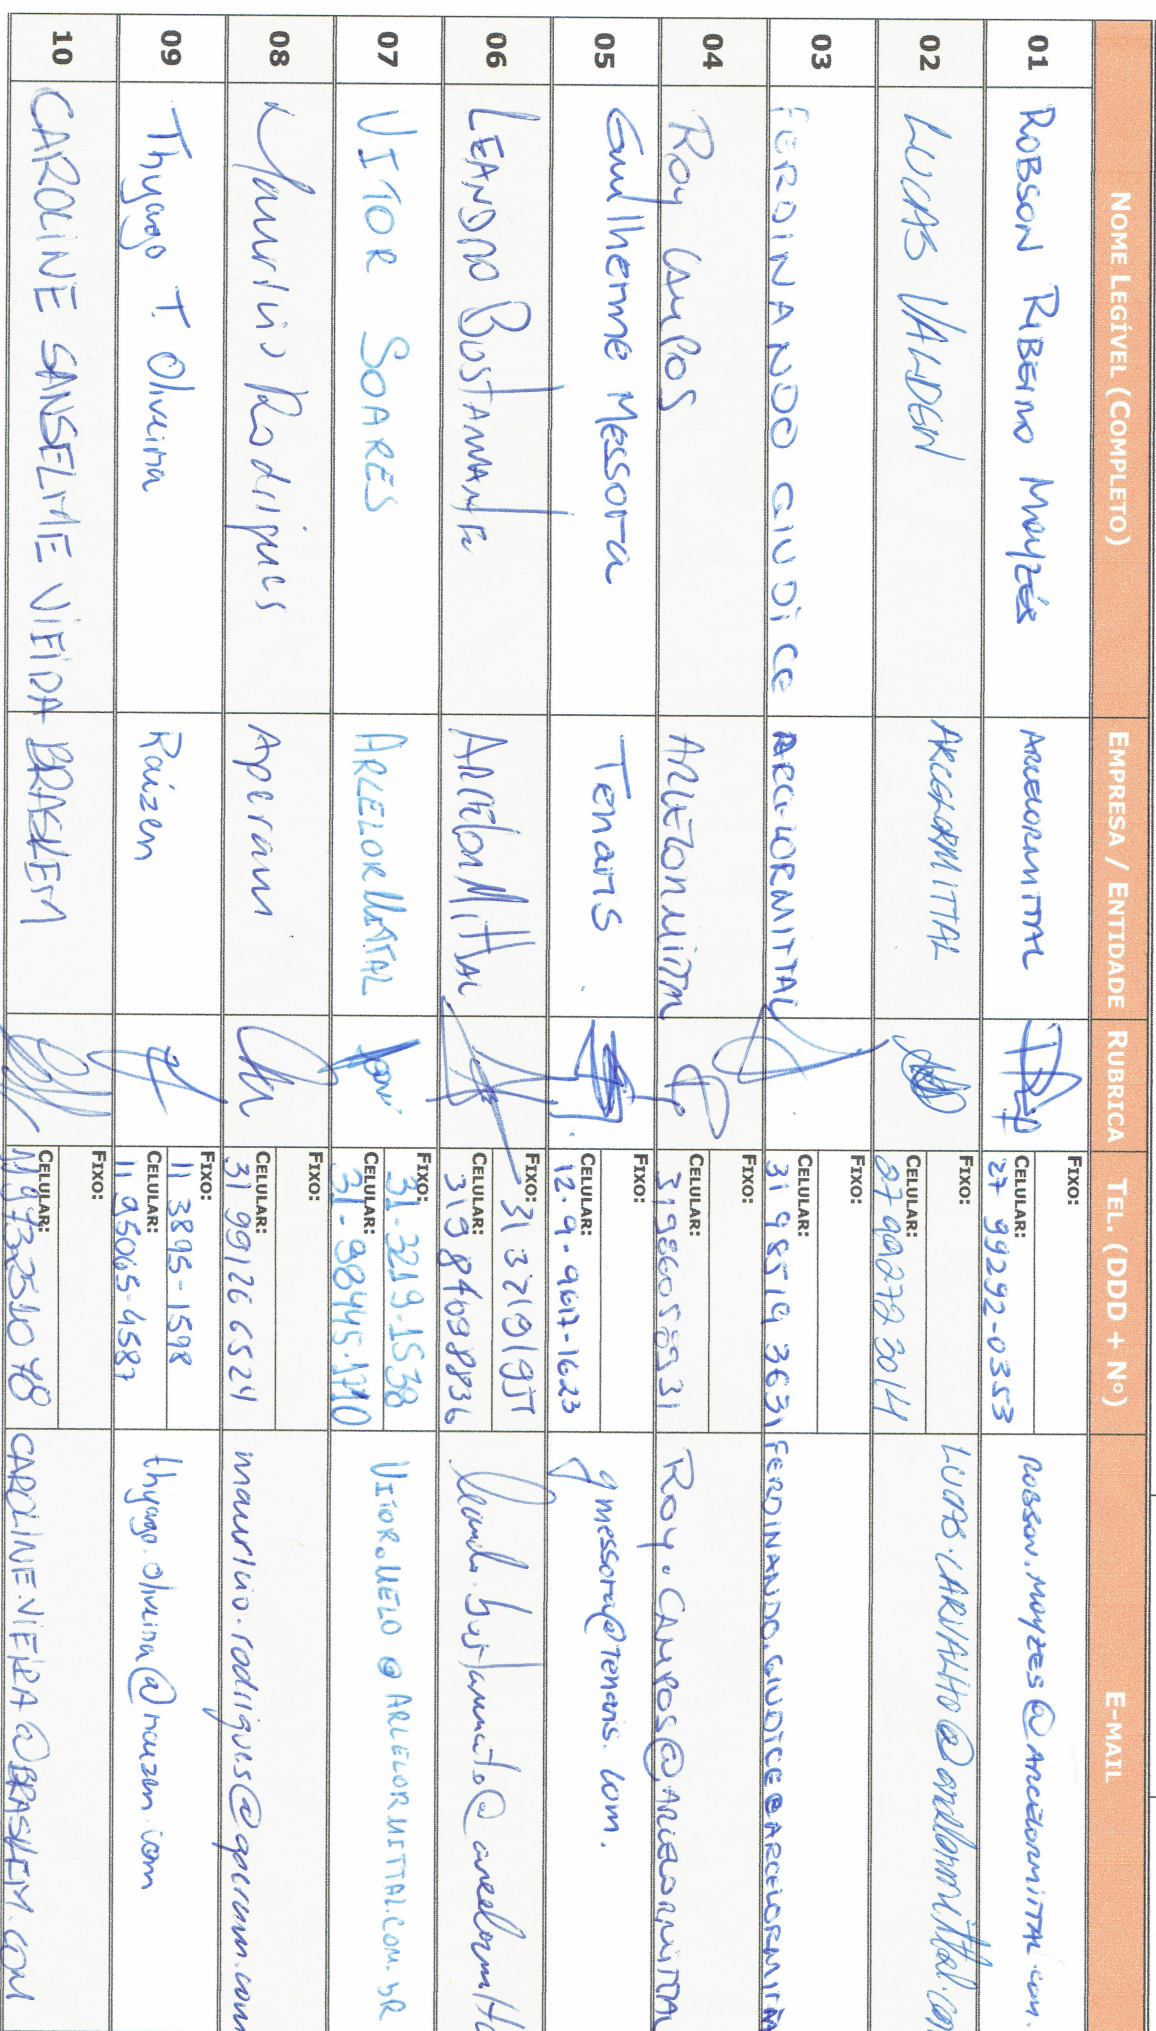 NOME LEGÍVEL (COMPLETO) EMPRESA / ENTIDADE RUBRICA TEL. (DDD + Nº) E-MAIL
01 ROBSON RIBEIRO MOYZÉS ARCELORMITTAL FIXO:
CELULAR: 27 99292-0353 ROBSON.MOYZES@ARCELORMITTAL.COM.
02 LUCAS VALDEN ARCELORMITTAL FIXO:
CELULAR: 27 992783014 LUCAS.CARVALHO@arcelormittal.com
03 FERDINANDO GIUDICE ARCELORMITTAL
CELULAR: 31 98519 3631 FERDINANDO.GIUDICE@ARCELORMITTA
04 Roy CAMPOS ARCELORMITTAL FIXO:
CELULAR: 31986058931 Roy.CAMPOS@ARCELORMITTAL
05 Guilherme Messora Tenaris FIXO:
CELULAR: 12.9.9617-1623 gmessora@tenaris.com.
06 LEANDRO BUSTAMANTE ArcelorMittal FIXO: 31 32191951
CELULAR: 31984098836 leandro.bustamante@arcelormitt
07 VITOR SOARES ARCELORMITTAL FIXO: 31-3219-1538
CELULAR: 31-98445-1710 VITOR.MELO@ARCELORMITTAL.COM.BR
08 Maurício Rodrigues Aperam FIXO:
CELULAR: 31 99126 6524 mauricio.rodrigues@aperam.com
09 Thyago T. Oliveira Raízen FIXO: 11 3895-1598
CELULAR: 11 95065-4587 thyago.oliveira@raizen.com
10 CAROLINE SANSELME VIEIRA BRASKEM FIXO:
CELULAR: 11973251078 CAROLINE.VIEIRA@BRASKEM.COM